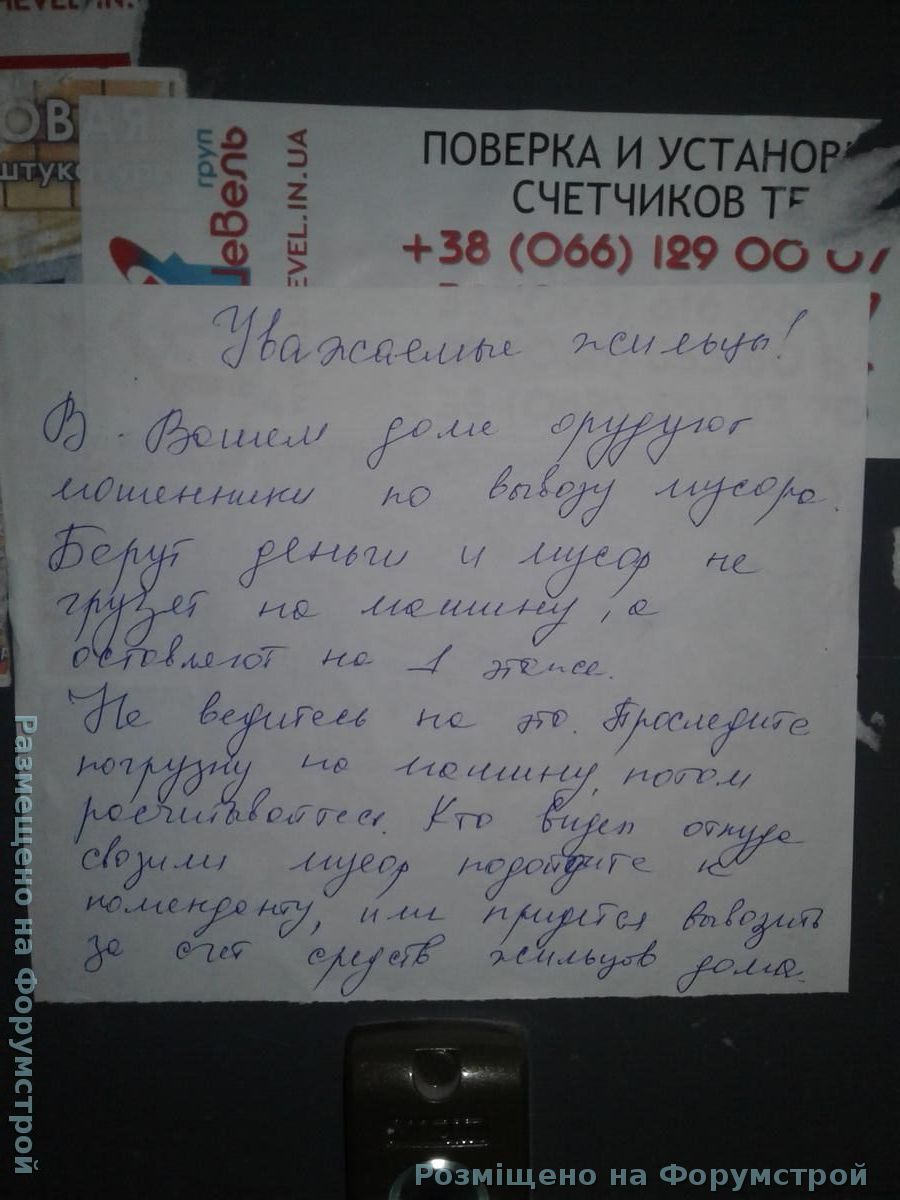 OВАЯ
штук
груп
ЦеВель
EVEL.IN.UA
ПОВЕРКА И УСТАНОВ
СЧЕТЧИКОВ ТЕ
+38 (066) 129 00 07
Уважаемые жильцы!
В Вашем доме орудуют
мошенники по вывозу мусора.
Берут деньги и мусор не
грузет на машину, а
оставляют на 1 этаже.
Не ведитесь на это. Проследите
погрузку на машину, потом
расчитывайтесь. Кто видел откуда
свозили мусор подойдите к
коменданту, или придется вывозить
за счет средств жильцов дома.
Размещено на Форумстрой
Розміщено на Форумстрой